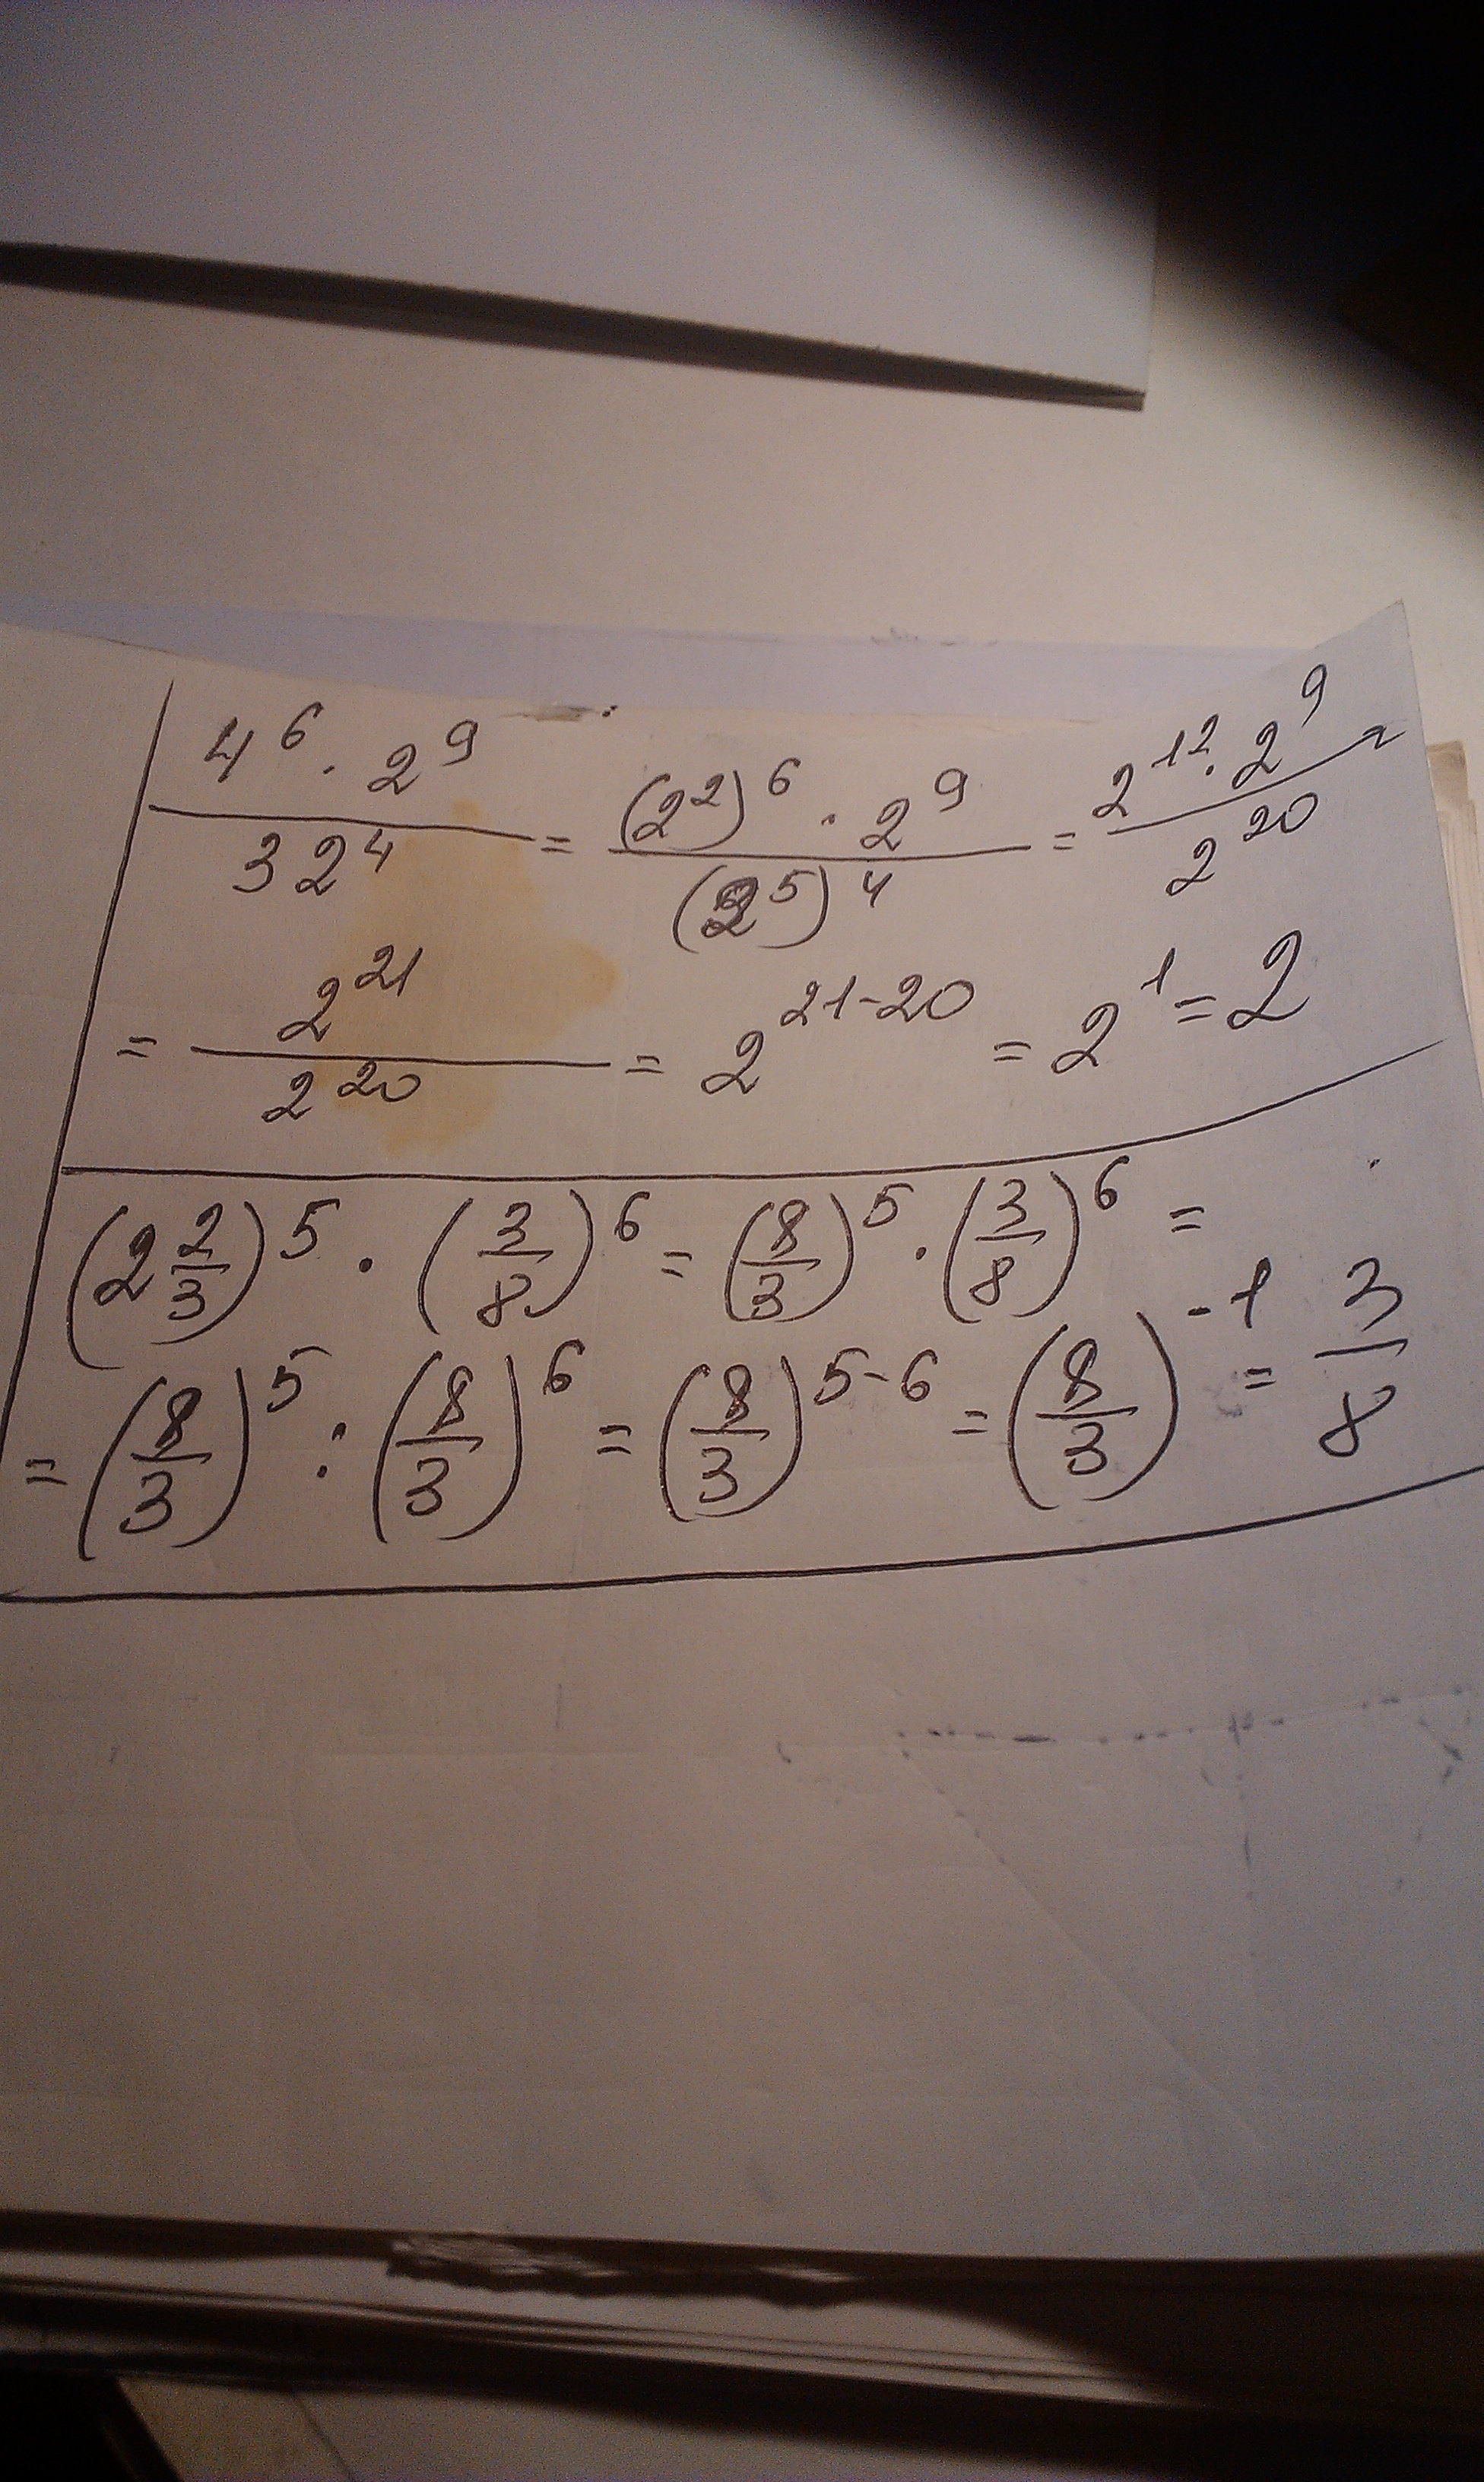 4⁶ · 2⁹ / 32⁴ = (2²)⁶ · 2⁹ / (2⁵)⁴ = 2¹² · 2⁹ / 2²⁰ =
= 2²¹ / 2²⁰ = 2²¹⁻²⁰ = 2¹ = 2
(2 2/3)⁵ · (3/8)⁶ = (8/3)⁵ · (3/8)⁶ =
= (8/3)⁵ : (8/3)⁶ = (8/3)⁵⁻⁶ = (8/3)⁻¹ = 3/8